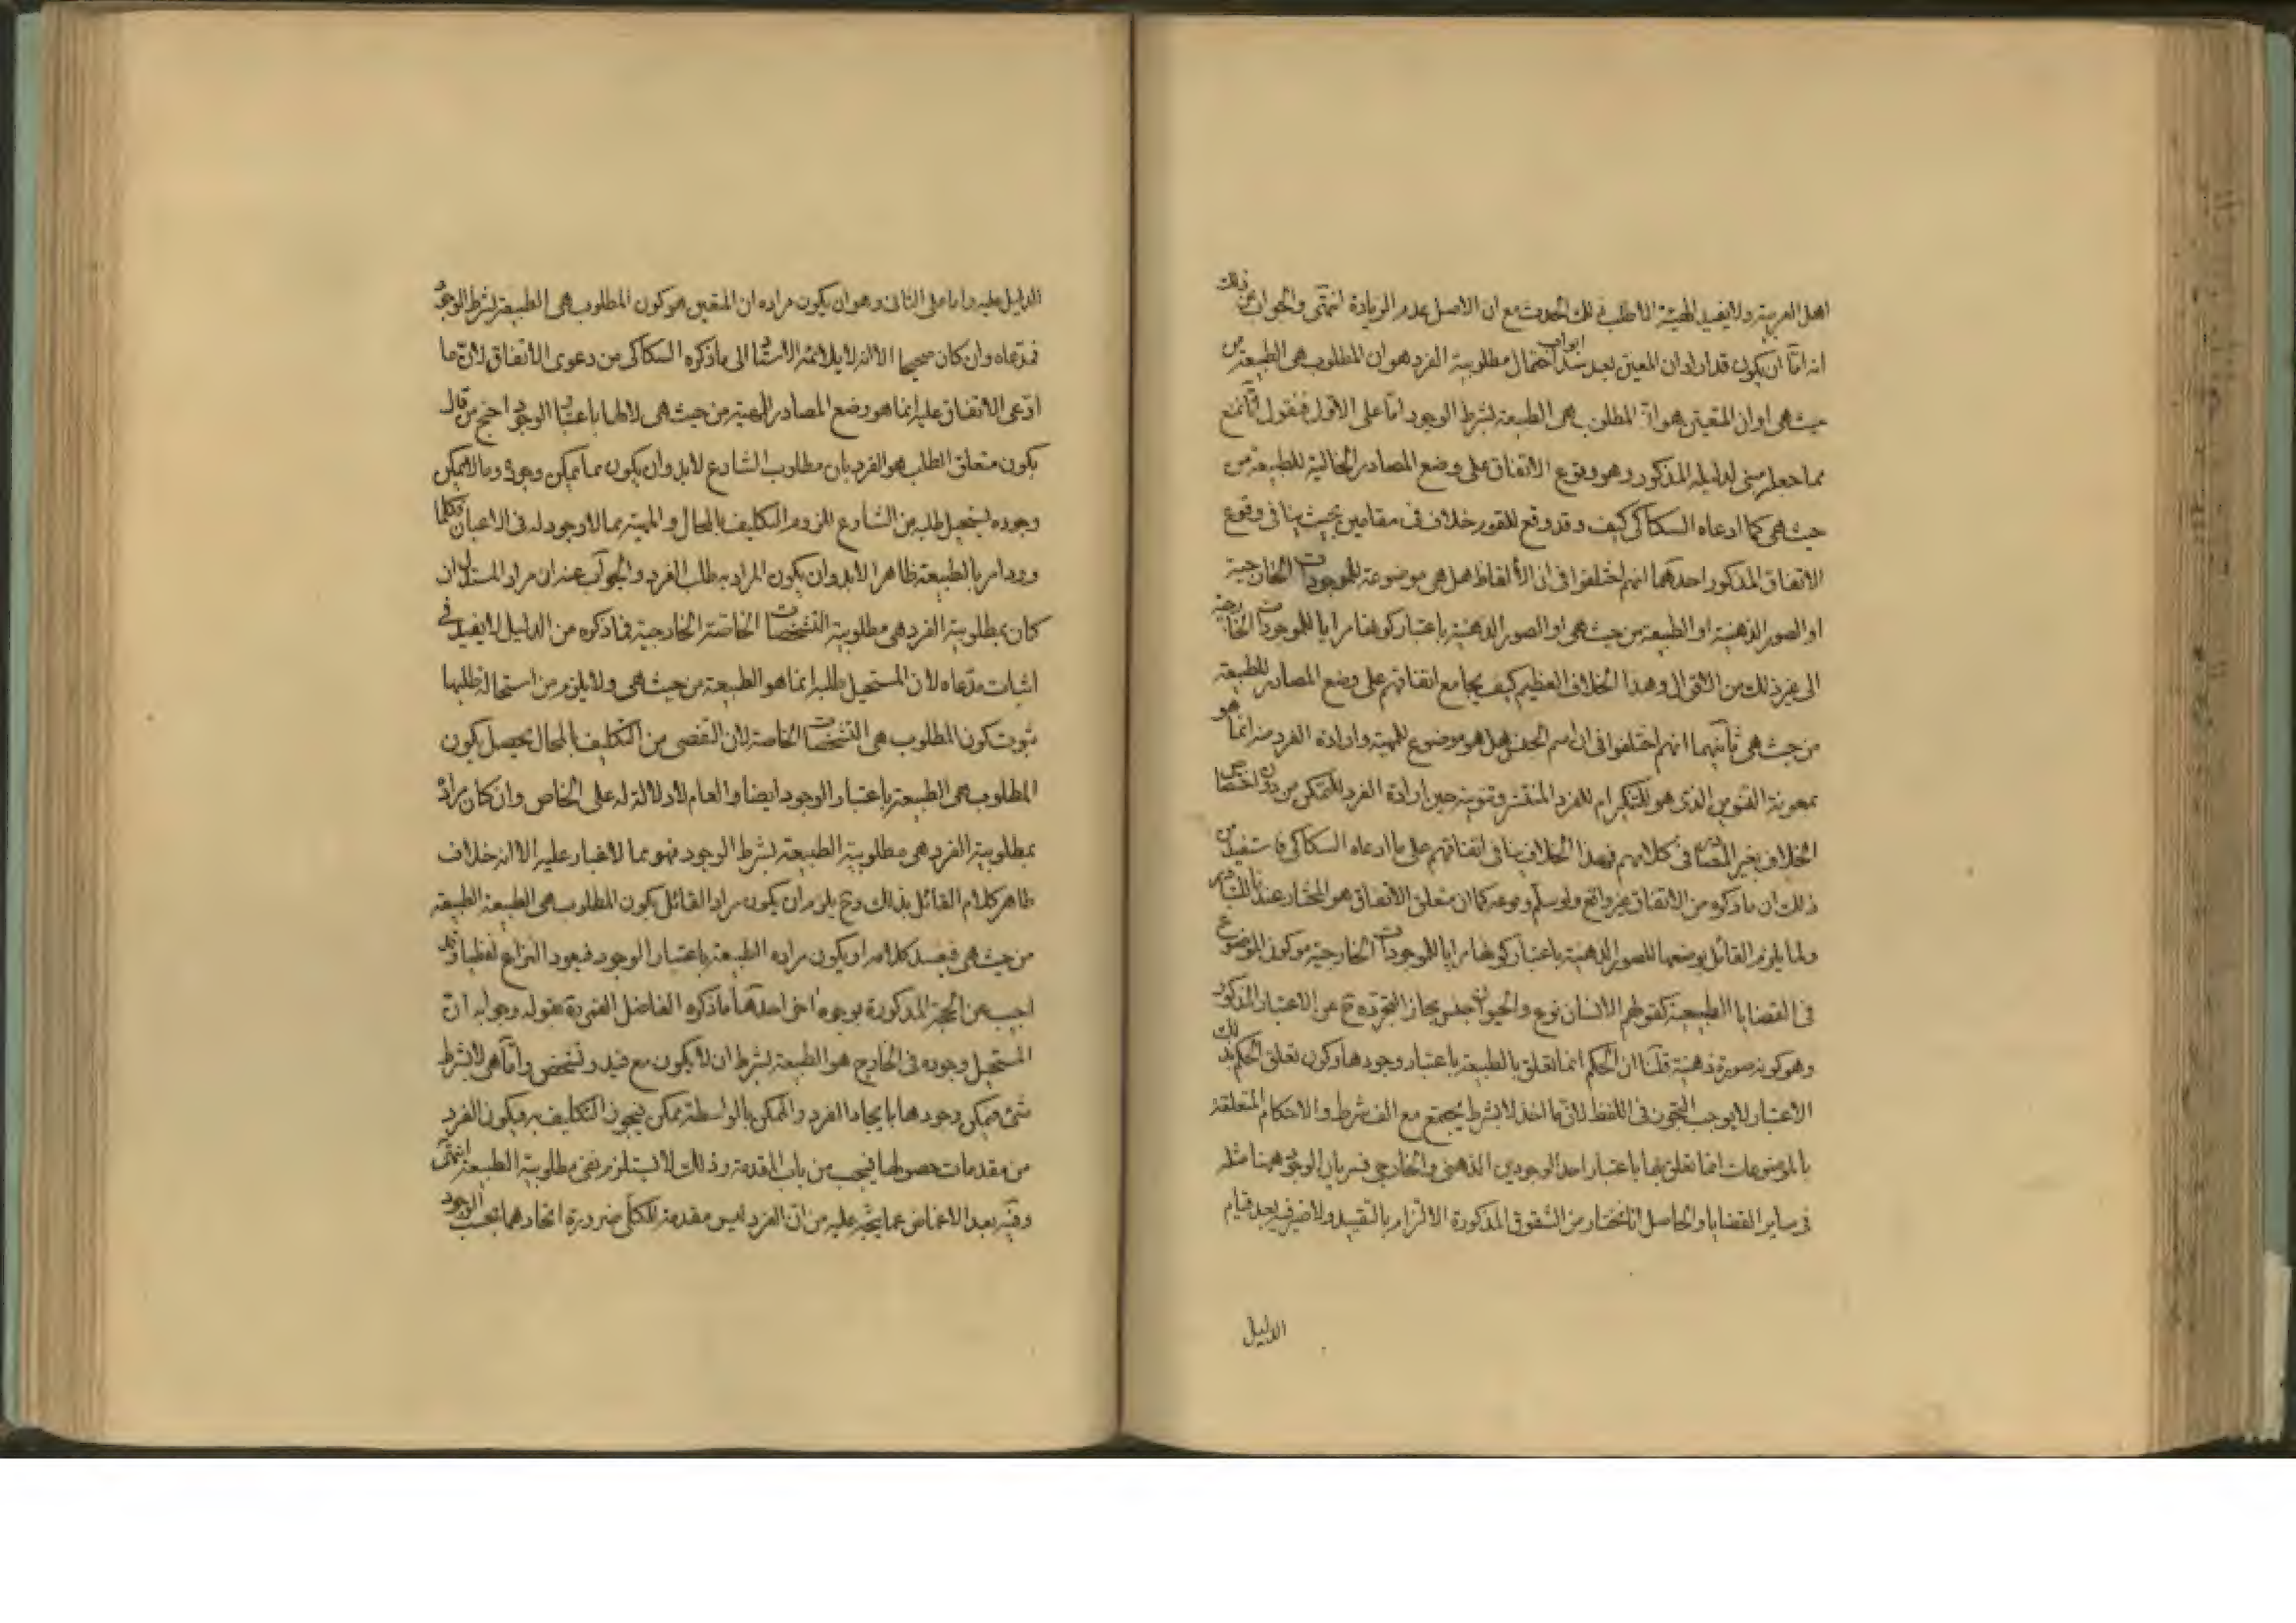 اهل العربية ولا يفيد الهيئة الا طلب ذلك الحدث مع ان الاصل عدم الزيادة انتهى والجواب عن ذلك
انه اما ان يكون قد اراد ان المعين بعد سد ابواب احتمال مطلوبية الفرد هو ان المطلوب هى الطبيعة من
حيث هى او ان المتعين هو ان المطلوب هى الطبيعة بشرط الوجود اما على الاول فنقول انا نمنع
مما جعله مبنى لدليله المذكور وهو وقوع الاتفاق على وضع المصادر الخالية للطبيعة من
حيث هى كما ادعاه السكاكى كيف وقد وقع للقوم خلاف فى مقامين بحيث ينافى وقوع
الاتفاق المذكور احدهما انهم اختلفوا فى ان الألفاظ هل هى موضوعة للموجودات الخارجية
او الصور الذهنية او الطبيعة من حيث هى او الصور الذهنية باعتبار كونها مرايا للموجودات الخارجية
الى غير ذلك من الاقوال وهذا الخلاف العظيم كيف يجامع اتفاقهم على وضع المصادر للطبيعة
من حيث هى ثانيهما انهم اختلفوا فى ان اسم الجنس هل هو موضوع للمهية وارادة الفرد منه انما هو
بمعونة التنوين الذى هو للتنكير ام للفرد المنتشر وتنوينه حين ارادة الفرد للتمكن من دون اختصاص
الخلاف بغير المصادر فى كلامهم فهذا الخلاف ينافى اتفاقهم على ما ادعاه السكاكى فاستفيد من
ذلك ان ما ذكره من الاتفاق غير واقع ولو سلم وقوعه كما ان متعلق الاتفاق هو المختار عندنا
ولما يلزم القائل بوضعها للصور الذهنية باعتبار كونها مرايا للموجودات الخارجية هو كون الموضوع
فى القضايا الطبيعية كقولهم الانسان نوع والحيوان جنس مجاز التجرده ح عن الاعتبار المذكور
وهو كونه صورة ذهنية قلنا ان الحكم انما تعلق بالطبيعة باعتبار وجودها وكون تعلق الحكم بذلك
الاعتبار لا يوجب التجوز فى اللفظ لان ما اخذ لا بشرط يجتمع مع الف شرط والاحكام المتعلقة
بالموضوعات انما تعلق بها باعتبار احد الوجودين الذهنى والخارجى فسريان الوجود ههنا مثله
فى ساير القضايا والحاصل انا نختار من الشقوق المذكورة الالتزام بالتقييد ولا ضير فيه بعد قيام
الدليل
الدليل عليه واما على الثانى وهو ان يكون مراده ان المتعين هو كون المطلوب هى الطبيعة بشرط الوجود
فمدعاه وان كان صحيحا الا انه لا يلائمه الاستناد الى ما ذكره السكاكى من دعوى الاتفاق لان ما
ادعى الاتفاق عليه انما هو وضع المصادر للمهية من حيث هى لا لها باعتبار الوجود احتج من قال
بكون متعلق الطلب هو الفرد بان مطلوب الشارع لابد وان يكون مما يمكن وجوده وما لا يمكن
وجوده يستحيل طلبه من الشارع للزوم التكليف بالمحال والمهية مما لا وجود له فى الاعيان فكلما
ورد امر بالطبيعة ظاهرا لابد وان يكون المراد به طلب الفرد والجواب عنه ان مراد المستدل ان
كان بمطلوبية الفرد هى مطلوبية التشخصات الخاصة الخارجية فما ذكره من الدليل لا يفيد فى
اثبات مدعاه لان المستحيل طلبه انما هو الطبيعة من حيث هى ولا يلزم من استحالة طلبها
ثبوت كون المطلوب هى التشخصات الخاصة لان التفصى من التكليف بالمحال يحصل بكون
المطلوب هى الطبيعة باعتبار الوجود ايضا والعام لا دلالة له على الخاص وان كان مراده
بمطلوبية الفرد هى مطلوبية الطبيعة بشرط الوجود فهو مما لا غبار عليه الا انه خلاف
ظاهر كلام القائل بذلك وح يلزم ان يكون مراد القائل بكون المطلوب هى الطبيعة الطبيعة
من حيث هى فيفسد كلامه او يكون مراده الطبيعة باعتبار الوجود فيعود النزاع لفظيا وقد
اجيب عن الحجة المذكورة بوجوه اخر احدها ما ذكره الفاضل القمى ره بقوله وجوابه ان
المستحيل وجوده فى الخارج هو الطبيعة بشرط ان لا يكون مع قيد وتشخص واما هى لا بشرط
شئ فيمكن وجودها بايجاد الفرد والممكن بالواسطة ممكن فيجوز التكليف به فيكون الفرد
من مقدمات حصولها فيجب من باب المقدمة وذلك لا يستلزم نفى مطلوبية الطبيعة انتهى
وفيه بعد الاغماض عما يتجه عليه من ان الفرد ليس مقدمة للكلى ضرورة اتحادهما بحسب الوجود